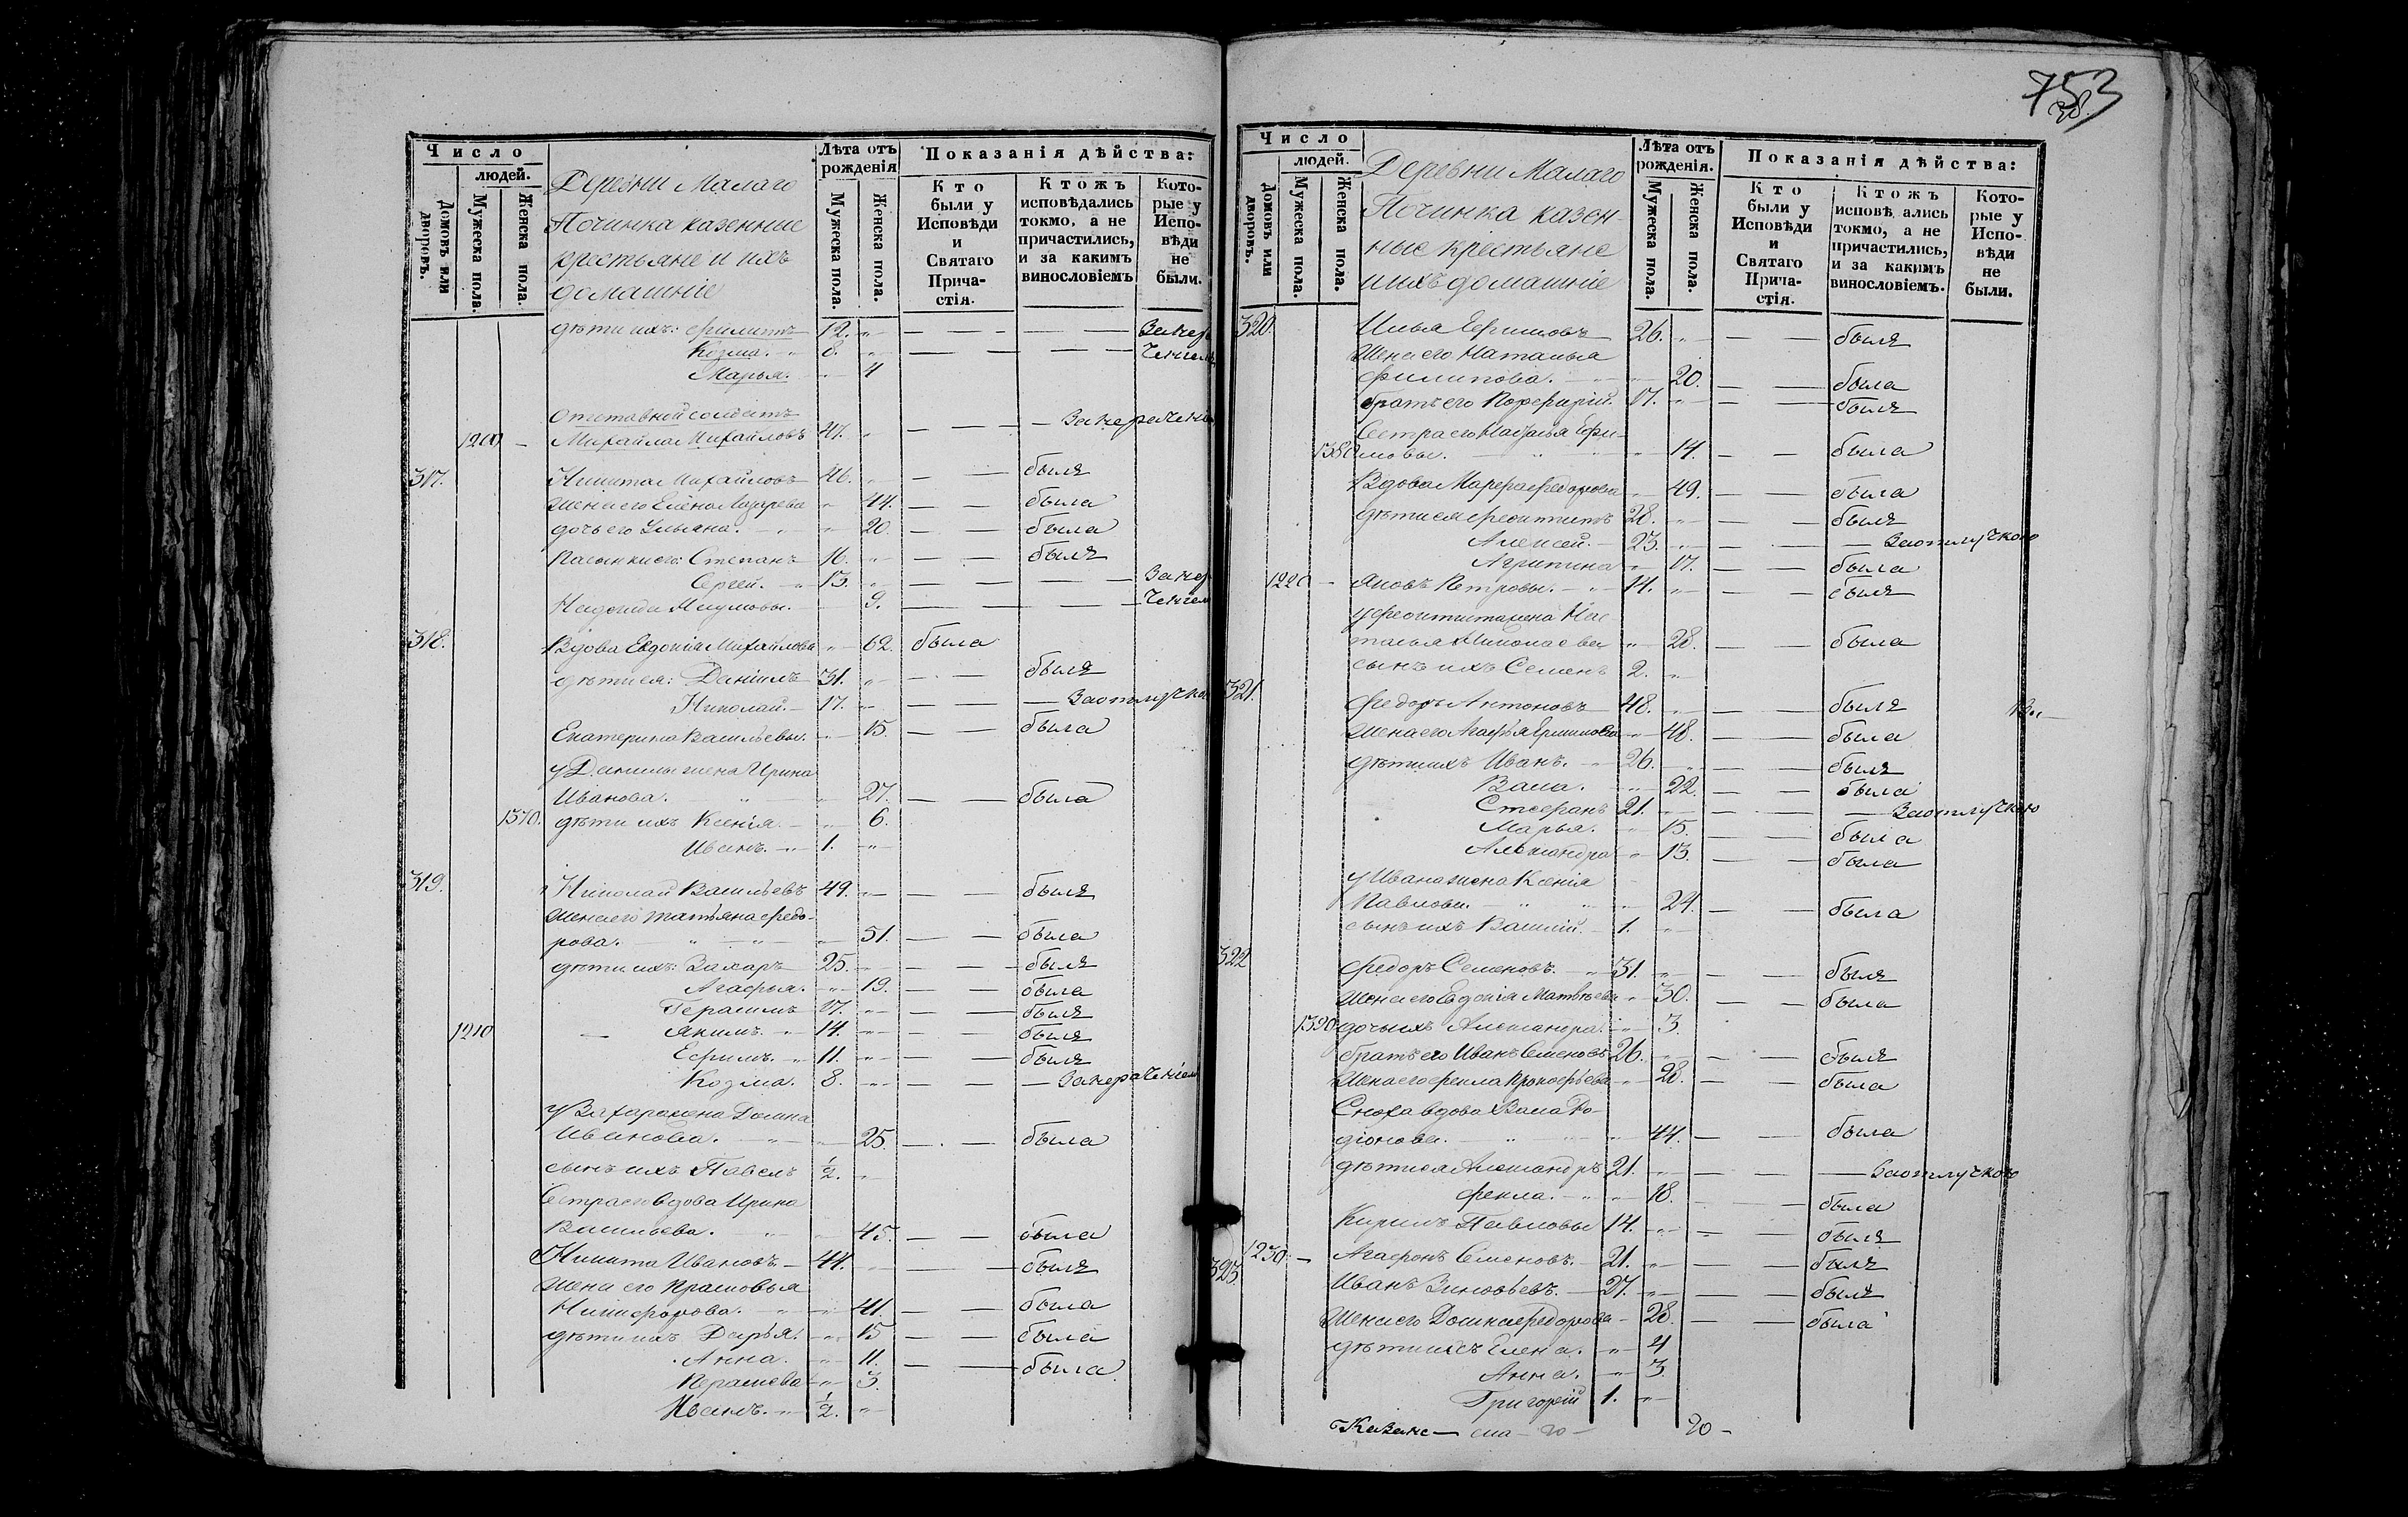 Число
людей.
Домовъ или дворовъ.
Мужеска пола.
Женска пола.
Деревни Малаго
Починка казенные
крестьяне и ихъ
домашніе
Лѣта отъ рожденія
Мужеска пола.
Женска пола.
Показанія дѣйства:
Кто были у Исповѣди и Святаго Прича-стія.
Ктожъ исповѣдались токмо, а не причастились, и за какимъ винословіемъ
Кото-рые у Испо-вѣди не были.
дѣти ихъ: Филиппъ 12. „
Козма. „ 8. „
Марья. „ 4
Отставной солдатъ
1200 — Михайла Михайловъ 47. „
317. Никита Михайловъ 46. „ былъ
жена его Елена Лазарева „ 44. была
дочь его Ульяна. „ 20. была
пасынки его: Степанъ 16. „ былъ
Сергей. „ 13. „
Надежда Наумовы. 9.
318. Вдова Евдокія Михайлова „ 62. была
дѣти ея: Даніилъ 31. „ былъ
Николай. 17. „ За отлучкою
Екатерина Васильевы. „ 15. была
у Данилы жена Ирина
Иванова. „ 27. была
1370. дѣти ихъ Ксенія. „ 6.
Иванъ. „ 1. „
319. Николай Васильевъ 49. „ былъ
жена его Татьяна Федо-
рова. „ „ 51. была
дѣти ихъ: Захаръ 25. „ былъ
Агафья. „ 19. была
Герасимъ 17. „ былъ
1210 — Якимъ. „ 14. „ былъ
Ефимъ. „ 11. „ былъ
Козма. 8. „ За нерачѣніем
у Захара жена Домна
Иванова. „ 25. была
сынъ ихъ Павелъ 1/2. „
Сестра его вдова Ирина
Васильева. „ 45. была
Никита Ивановъ 44. „ былъ
жена его Прасковья
Никифорова. „ 41. была
дѣти ихъ Дарья. „ 15 была
Анна. „ 11. была
Парасковья „ 3.
Иванъ. „ 1/2. „
753
38.
Число
людей.
Домовъ или дворовъ.
Мужеска пола.
Женска пола.
Деревни Малаго
Починка казен-
ные крестьяне
и ихъ домашніе
Лѣта отъ рожденія.
Мужеска пола.
Женска пола.
Показанія дѣйства:
Кто были у Исповѣди и Святаго Прича-стія.
Ктожъ исповѣ ались токмо, а не причастились, и за какимъ винословіемъ.
Кото-рые у Испо-вѣди не были.
320. Илья Ефимовъ 26. „ былъ
жена его Наталья
Филипова. „ 20. была
братъ его Порфирій. 17. „ былъ
Сестра его Наталья Ефи-
1380 мовы. „ „ 14. была
Вдова Марфа Федорова „ 49. была
дѣти ея Феоктистъ 28. „ былъ
Алексей. 23. „ За отлучкою
Агрипина „ 17. была
1220 — Яковъ Петровы. 14. „ былъ
у Феоктиста жена На-
талья Николаева „ 28. была
сынъ ихъ Семенъ 2. „
321. Федоръ Антоновъ 48. „ былъ
жена его Агафья Ермилова „ 48. была
дѣти ихъ Иванъ. 26. „ былъ
Васса. „ 22. была
Стефанъ 21. За отлучкою
Марья. „ 15. была
Александра „ 13. была
у Ивана жена Ксенія
Павлова. „ „ 24. была
сынъ ихъ Василій. 1. „
322 Федоръ Семеновъ. „ 31. „ былъ
жена его Евдокія Матвѣева „ 30. была
1390 дочь ихъ Александра. „ 3.
братъ его Иванъ Семеновъ 26. „ былъ
жена его Фекла Прокофьева „ 28. была
Сноха вдова Васа Ро-
діонова. „ „ 44. была
дѣти ея Александръ 21. „ За отлучкою
Фекла. „ 18. была
Кирилъ Павловы 14. „ былъ
1230. — Агафонъ Семеновъ. 21. „ былъ
323. Иванъ Зиновьевъ. 27. „ былъ
жена его Домна Федорова 28. была
дѣти ихъ Елена. „ 4
Анна. „ 3.
Григорій 1. „
20 —